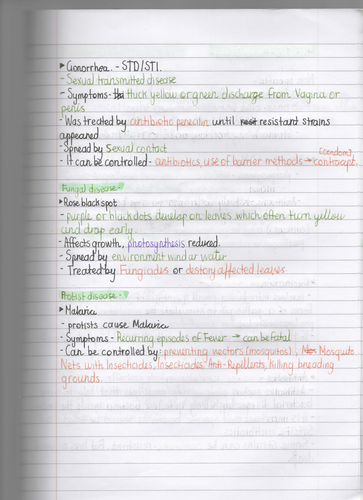 ▸ Gonorrhea - STD/STI.
- Sexual transmitted disease
- Symptoms - thick yellow or green discharge from Vagina or
penis
- Was treated by antibiotic penicilin until resistant strains
appeared
- Spread by sexual contact
[condom]
- It can be controlled - antibiotics, use of barrier methods → contracept.
Fungal disease -
▸ Rose black spot
- purple or black dots develop on leaves which often turn yellow
and drop early.
- Affects growth, photosynthesis reduced.
- Spread by environment wind or water
- Treated by Fungicides or destory affected leaves
Protist disease -
▸ Malaria
- protists cause Malaria
- Symptoms - Recurring episodes of Fever → can be fatal
- Can be controlled by: preventing vectors (mosquitos), Mosquite
Nets with Insecticides, Insecticides, Anti-Repillents, Killing breading
grounds.